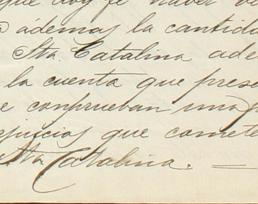 que doy fe haber
ó ádemas la cantida
Sta. Catalina ade
la cuenta que pres
e conprueban una
juicios que comete
Sta Catalina.